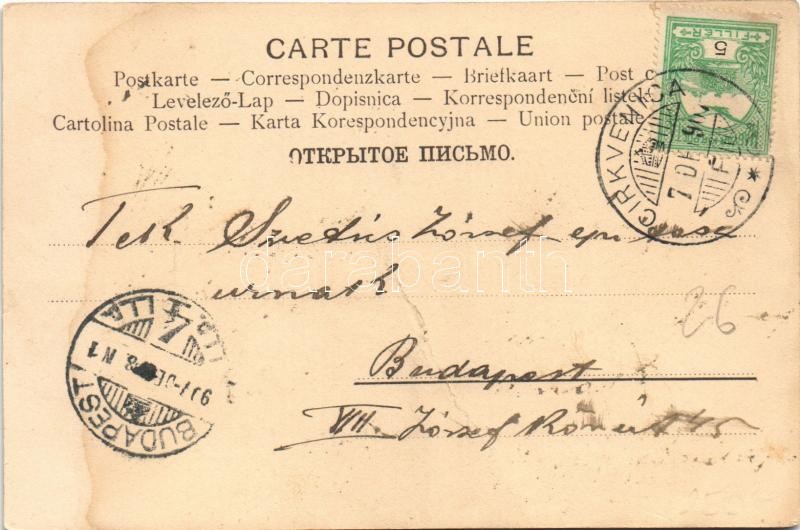 CARTE POSTALE
Postkarte — Correspondenzkarte — Briefkaart — Post c
Levelező-Lap — Dopisnica — Korrespondenční listek
Cartolina Postale — Karta Korespondencyjna — Union postale
ОТКРЫТОЕ ПИСЬМО.
5
FILLER
CIRKVENICA
Tek. József
urnak
Budapest
VII. József
BUDAPEST
26
darabanth